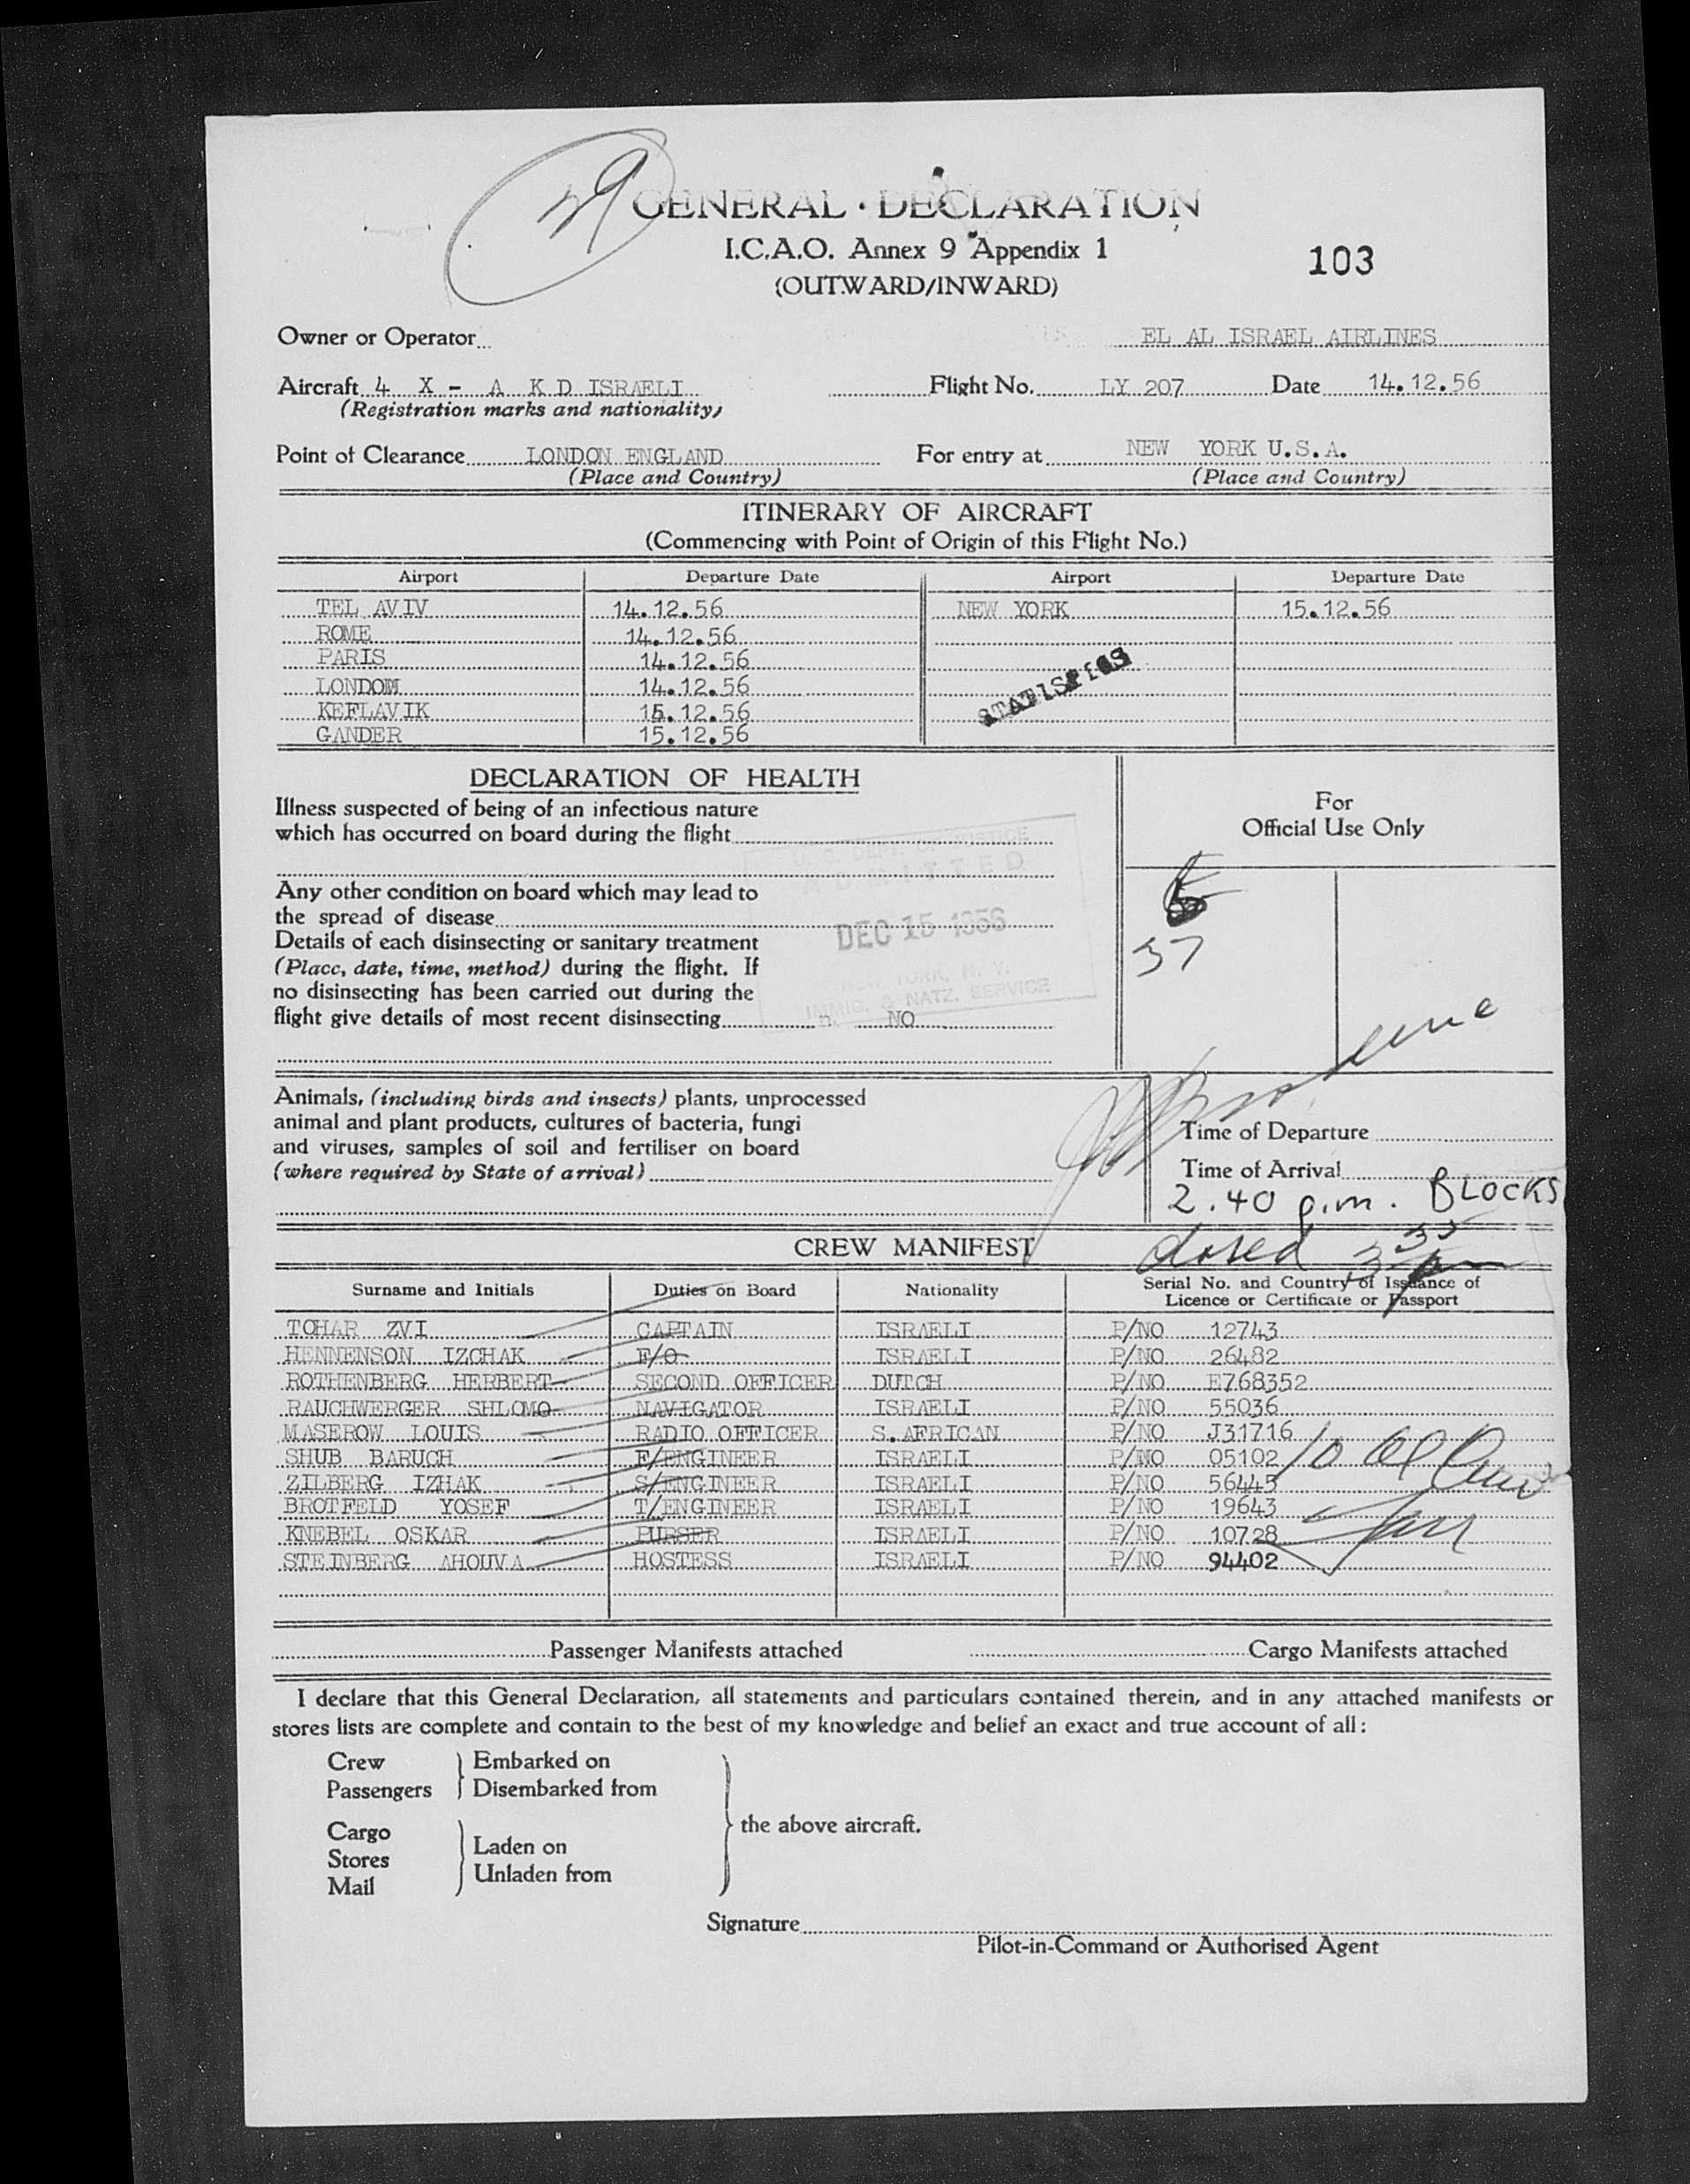 29
GENERAL · DECLARATION
I.C.A.O. Annex 9 Appendix 1
103
(OUTWARD/INWARD)
Owner or Operator EL AL ISRAEL AIRLINES
Aircraft 4 X - A K D ISRAELI Flight No. LY 207 Date 14.12.56
(Registration marks and nationality)
Point of Clearance LONDON ENGLAND For entry at NEW YORK U.S.A.
(Place and Country) (Place and Country)
ITINERARY OF AIRCRAFT
(Commencing with Point of Origin of this Flight No.)
Airport Departure Date Airport Departure Date
TEL AVIV 14.12.56 NEW YORK 15.12.56
ROME 14.12.56
PARIS 14.12.56
LONDOM 14.12.56
KEFLAVIK 15.12.56
GANDER 15.12.56
STATISTICS
DECLARATION OF HEALTH
Illness suspected of being of an infectious nature
which has occurred on board during the flight
Any other condition on board which may lead to
the spread of disease
Details of each disinsecting or sanitary treatment
(Place, date, time, method) during the flight. If
no disinsecting has been carried out during the
flight give details of most recent disinsecting NO
U. S. DEPT. OF JUSTICE
ADMITTED
DEC 15 1956
NEW YORK, N. Y.
IMMIG. & NATZ. SERVICE
For
Official Use Only
37
Animals, (including birds and insects) plants, unprocessed
animal and plant products, cultures of bacteria, fungi
and viruses, samples of soil and fertiliser on board
(where required by State of arrival)
Time of Departure
Time of Arrival
2.40 p.m. BLOCKS
closed 3 35 pm
CREW MANIFEST
Surname and Initials Duties on Board Nationality Serial No. and Country of Issuance of
Licence or Certificate or Passport
TOHAR ZVI CAPTAIN ISRAELI P/NO 12743
HENNENSON IZCHAK F/O ISRAELI P/NO 26482
ROTHENBERG HERBERT SECOND OFFICER DUTCH P/NO E768352
RAUCHWERGER SHLOMO NAVIGATOR ISRAELI P/NO 55036
MASEROW LOUIS RADIO OFFICER S.AFRICAN P/NO J31716
SHUB BARUCH F/ENGINEER ISRAELI P/NO 05102
ZILBERG IZHAK S/ENGINEER ISRAELI P/NO 56445
BROTFELD YOSEF T/ENGINEER ISRAELI P/NO 19643
KNEBEL OSKAR PURSER ISRAELI P/NO 10728
STEINBERG AHOUVA HOSTESS ISRAELI P/NO 94402
10
Passenger Manifests attached Cargo Manifests attached
I declare that this General Declaration, all statements and particulars contained therein, and in any attached manifests or
stores lists are complete and contain to the best of my knowledge and belief an exact and true account of all:
Crew Embarked on
Passengers Disembarked from
the above aircraft.
Cargo
Stores Laden on
Mail Unladen from
Signature
Pilot-in-Command or Authorised Agent